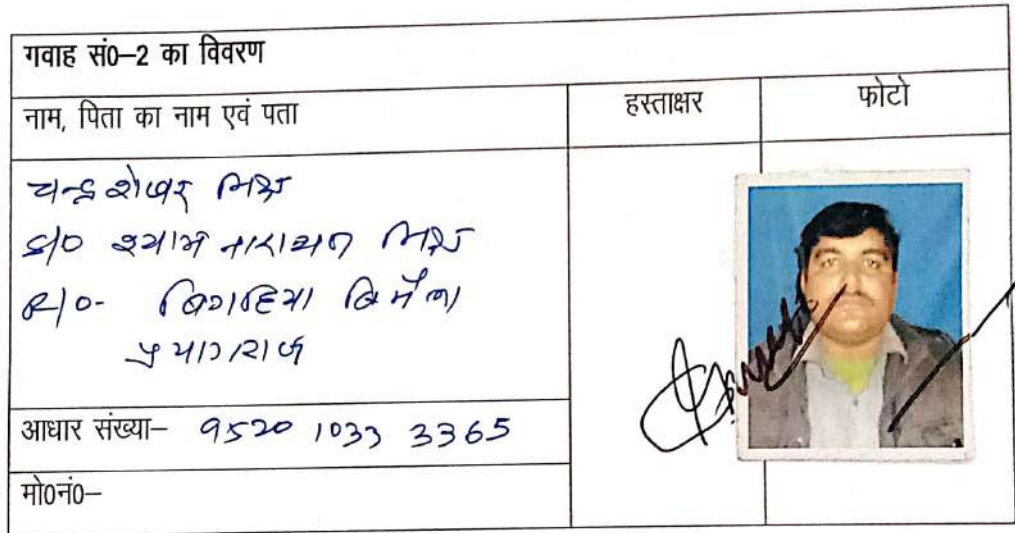 गवाह सं0–2 का विवरण
नाम, पिता का नाम एवं पता
हस्ताक्षर
फोटो
चन्द्रशेखर मिश्र
S/O श्याम नारायण मिश्र
R/O- बिगहिया
प्रयागराज
आधार संख्या– 9520 1033 3365
मो0नं0–